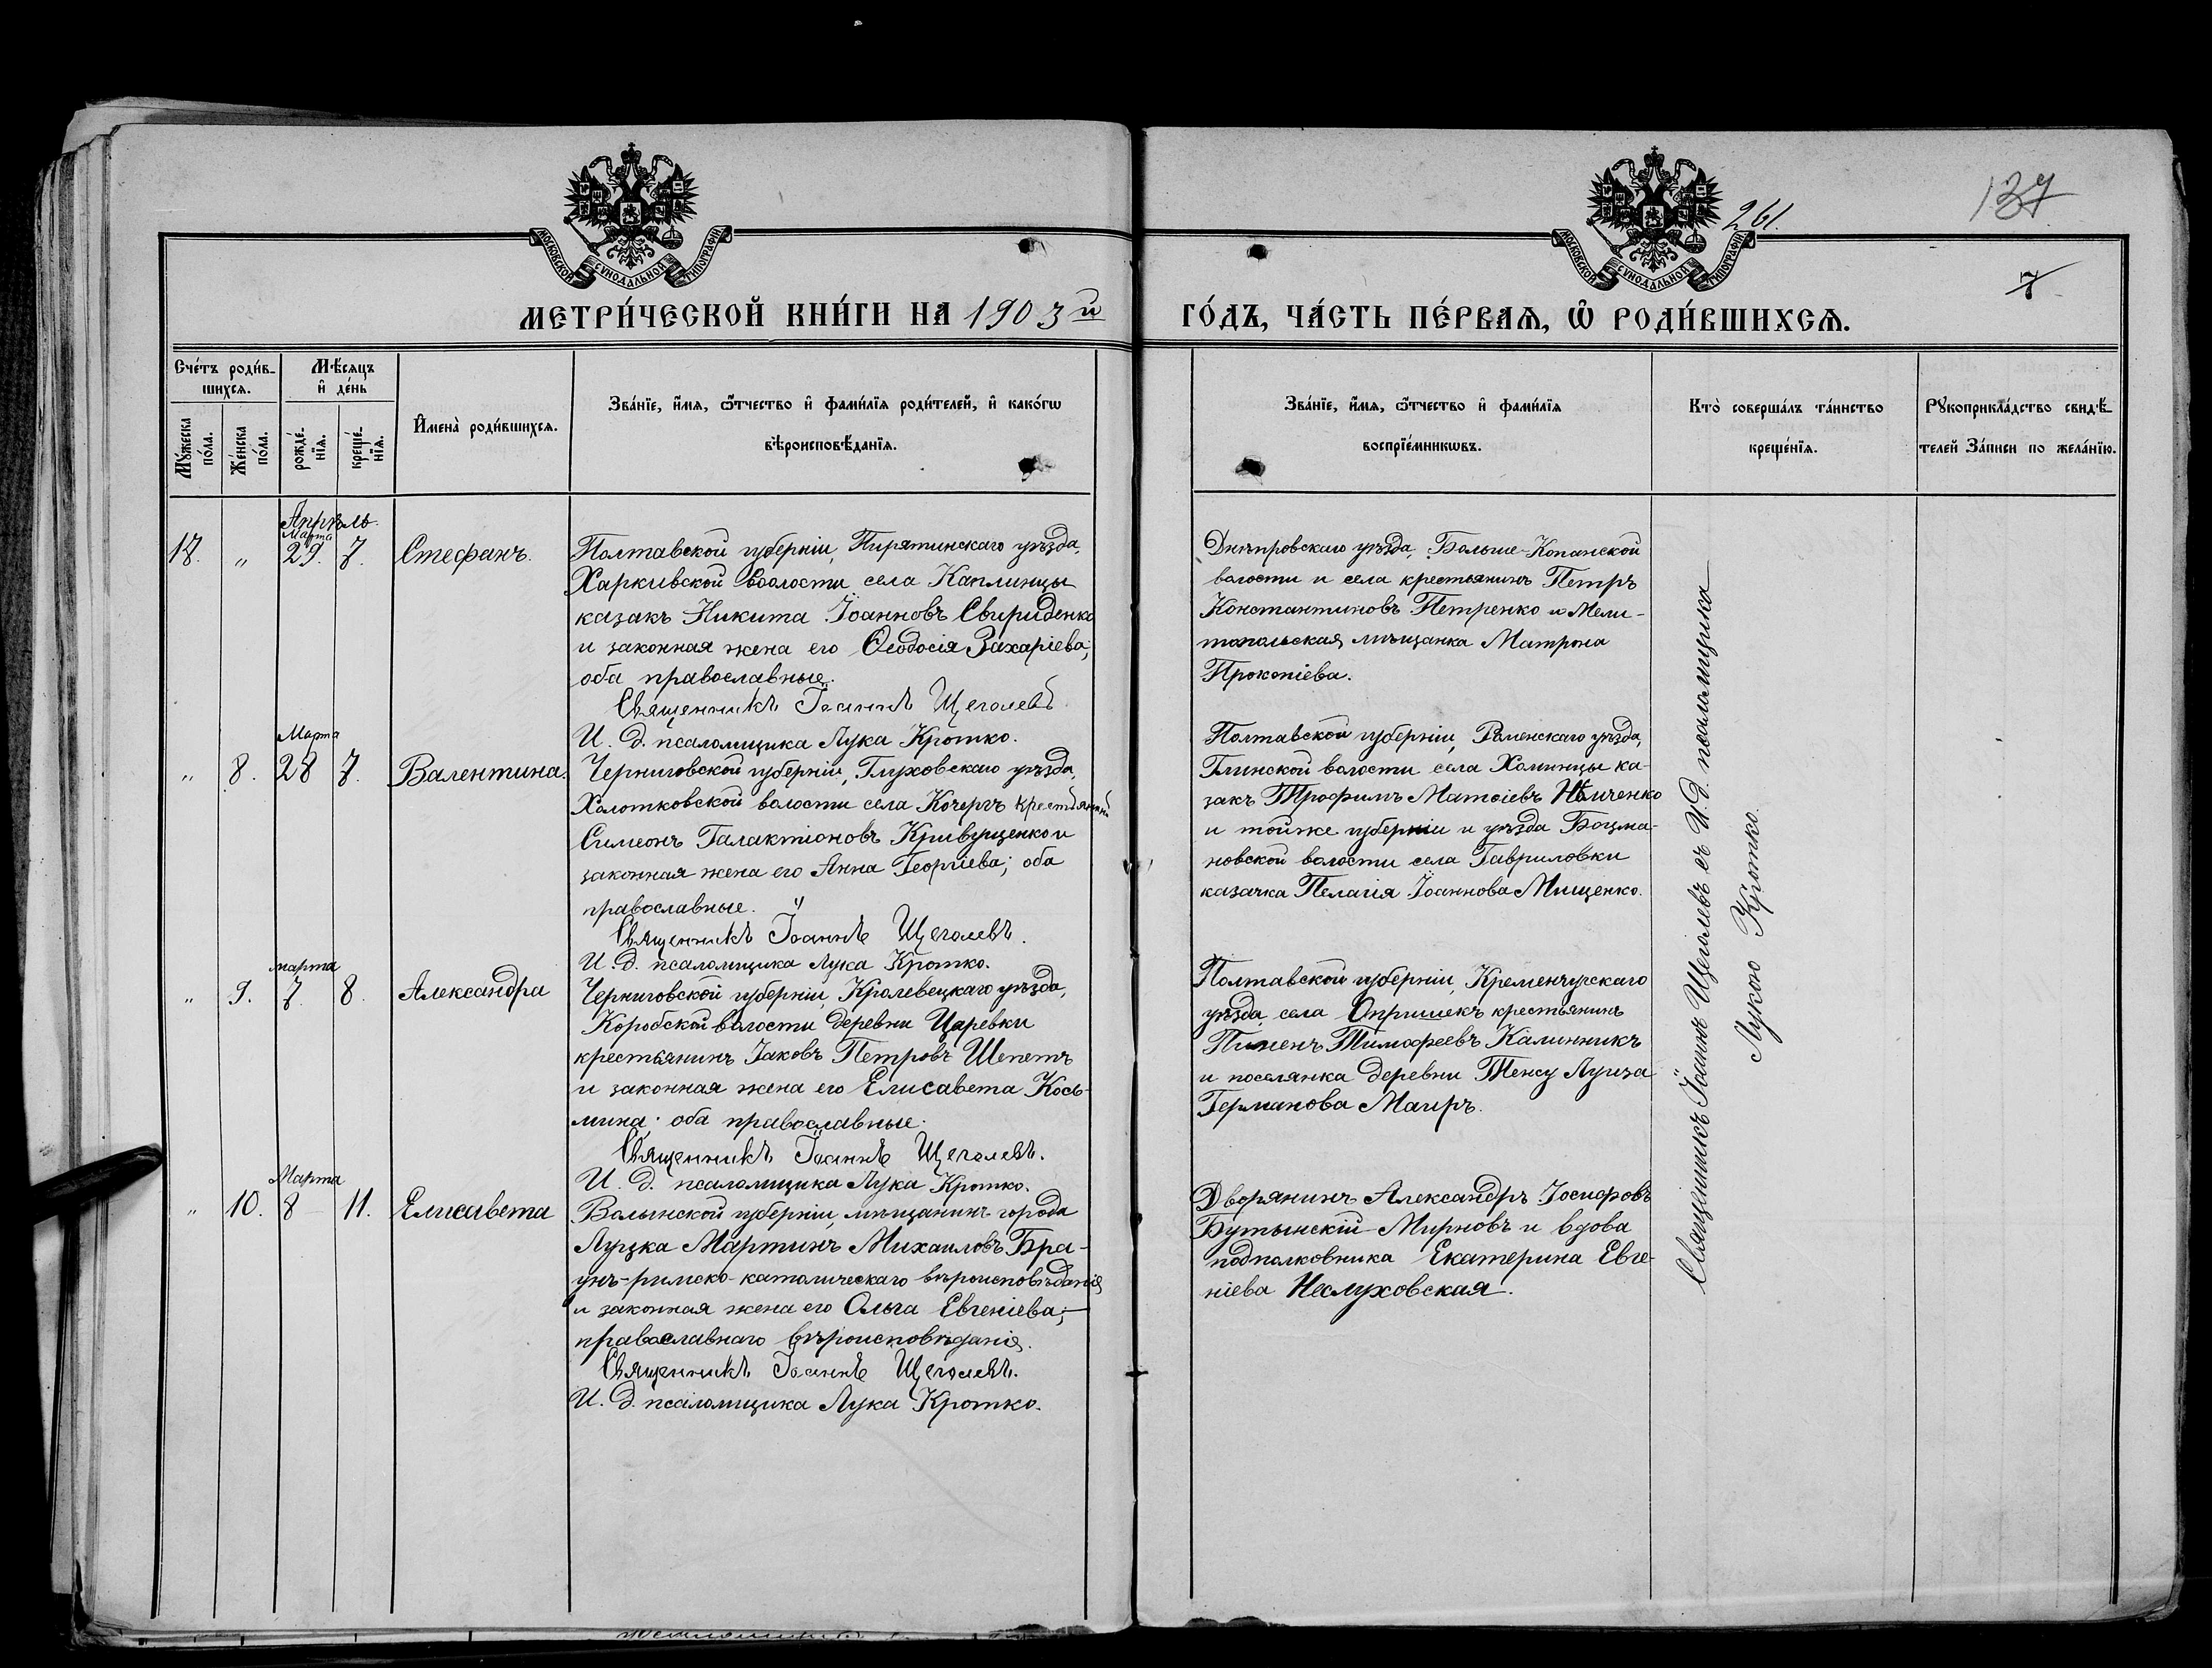 261.
137
7
МОСКОВСКОЙ СѴНОДАЛЬНОЙ ТИПОГРАФІИ
МОСКОВСКОЙ СѴНОДАЛЬНОЙ ТИПОГРАФІИ
МЕТРИ́ЧЕСКОЙ КНИ́ГИ НА 1903й
ГО́ДЪ, ЧА́СТЬ ПЕ́РВАѦ, Ѡ҆ РОДИ́ВШИХСѦ.
Сче́тъ роди́в-
шихсѧ.
Мꙋ́жеска
по́ла.
Же́нска
по́ла.
Мѣ́сѧцъ
и҆ де́нь
рожде́-
нїѧ.
креще́-
нїѧ.
И҆мена̀ роди́вшихсѧ.
Зва́нїе, и҆́мѧ, ѻ҆́тчество и҆ фами́лїѧ роди́телей, и҆ како́гѡ
вѣроисповѣ́данїѧ.
Зва́нїе, и҆́мѧ, ѻ҆́тчество и҆ фами́лїѧ
воспрїе́мникѡвъ.
Кто̀ соверша́лъ та́инство
креще́нїѧ.
Рꙋкоприкла́дство свидѣ́-
телей За́писи по жела́нїю.
Апрѣль.
Марта
17. „ 29. 7. Стефанъ.
Полтавской губерніи, Пирятинскаго уѣзда,
Харкивской волости села Каплинцы
казакъ Никита Іоанновъ Свириденко
и законная жена его Ѳеодосія Захаріева;
оба православные.
Священникъ Іоаннъ Щеголевъ
И. д. псаломщика Лука Кротко.
Днѣпровскаго уѣзда, Больше-Копанской
волости и села крестьянинъ Петръ
Константиновъ Петренко и Мели-
топольская мѣщанка Матрона
Прокопіева.
Марта
„ 8. 28 7. Валентина.
Черниговской губерніи, Глуховскаго уѣзда,
Холопковской волости села Кочергъ крестьянинъ
Симеонъ Галактіоновъ Кривущенко и
законная жена его Анна Георгіева; оба
православные.
Священникъ Іоаннъ Щеголевъ.
И. д. псаломщика Лука Кротко.
Полтавской губерніи, Роменскаго уѣзда,
Глинской волости села Хоминцы ка-
закъ Трофимъ Матѳіевъ Ильченко
и тойже губерніи и уѣзда Боцма-
новской волости села Гавриловки
казачка Пелагія Іоаннова Мищенко.
марта
„ 9. 7. 8. Александра
Черниговской губерніи, Кролевецкаго уѣзда,
Коробской волости деревни Царевки
крестьянинъ Іаковъ Петровъ Шепетъ
и законная жена его Елисавета Кось-
мина; оба православные.
Священникъ Іоаннъ Щеголевъ.
И. д. псаломщика Лука Кротко.
Полтавской губерніи, Кременчугскаго
уѣзда, села Опришекъ крестьянинъ
Пименъ Тимофеевъ Калинникъ
и поселянка деревни Тенсу Луиза
Германова Маиръ.
Марта
„ 10. 8 11. Елисавета
Волынской губерніи, мѣщанинъ города
Луцка Мартинъ Михаиловъ Бра-
унъ-римско-католическаго вѣроисповѣданія
и законная жена его Ольга Евгеніева;-
православнаго вѣроисповѣданія.
Священникъ Іоаннъ Щеголевъ.
И. д. псаломщика Лука Кротко.
Дворянинъ Александръ Іосифовъ
Бутынскій-Мирновъ и вдова
подполковника Екатерина Евге-
ніева Неслуховская.
Священникъ Іоаннъ Щеголевъ съ И. д. псаломщика
Лукою Кротко